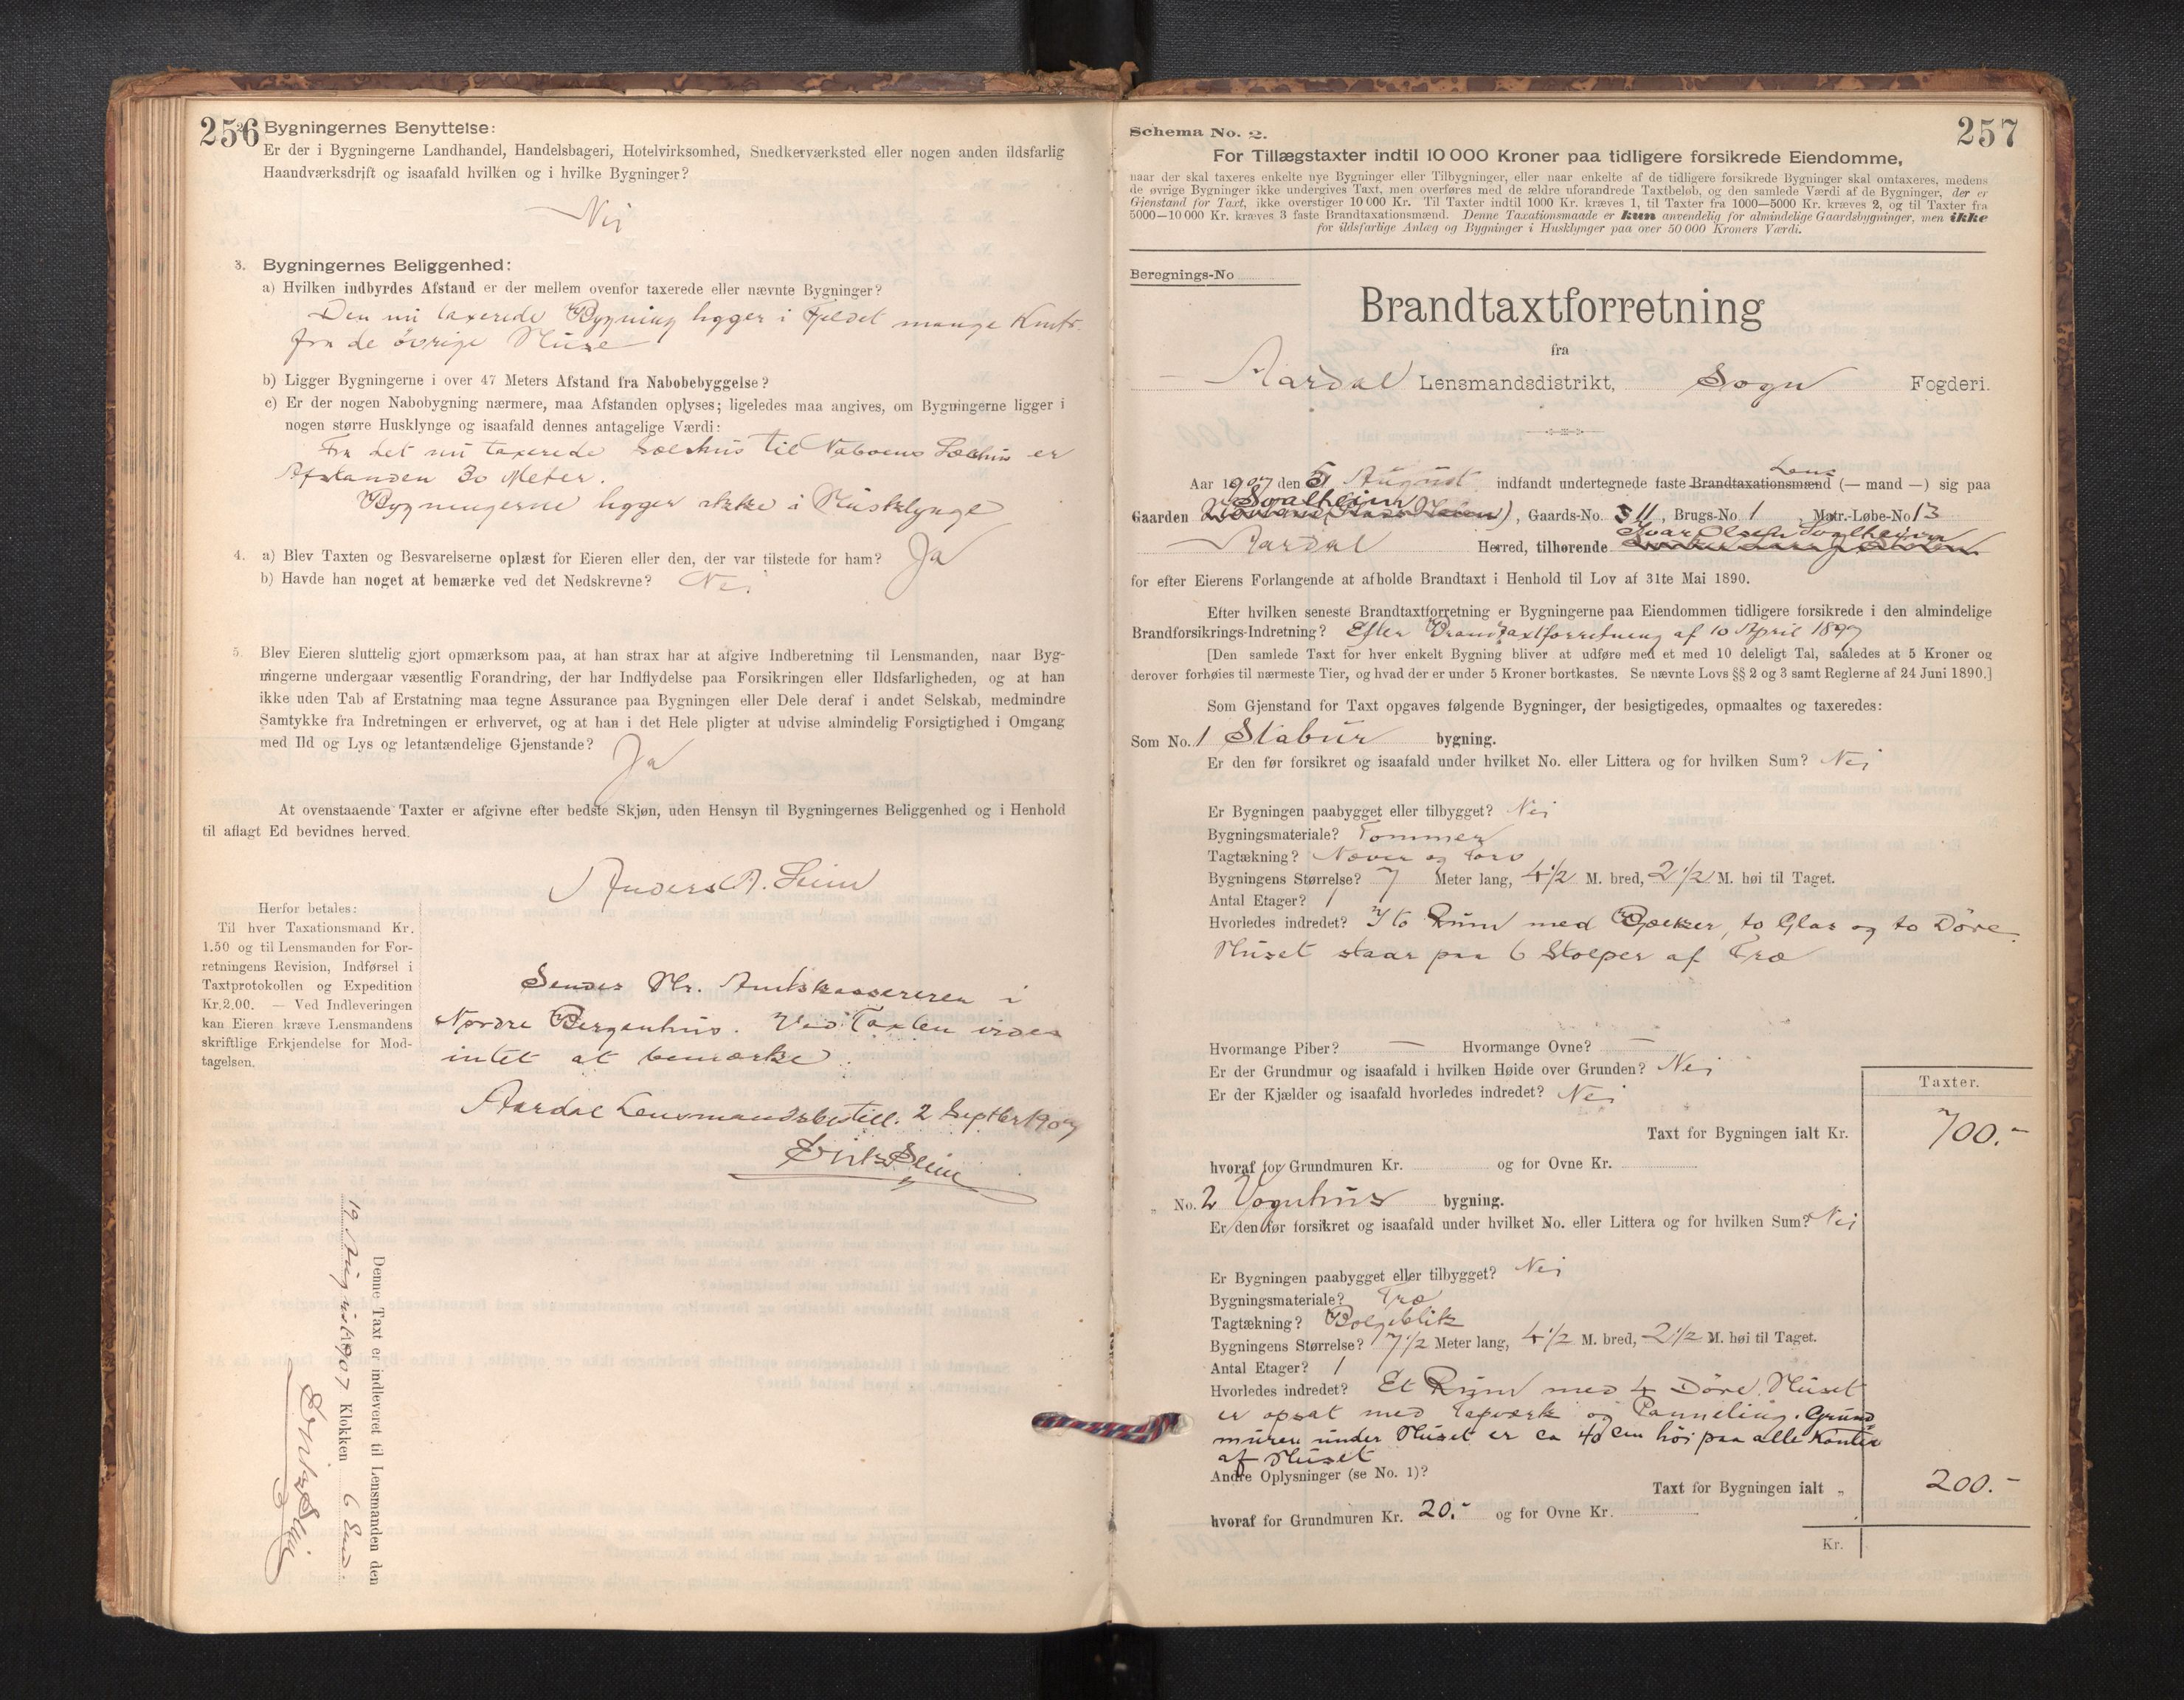 256
Bygningernes Benyttelse:
Er der i Bygningerne Landhandel, Handelsbageri, Hotelvirksomhed, Snedkerværksted eller nogen anden ildsfarlig
Haandværksdrift og isaafald hvilken og i hvilke Bygninger?
Nei
3. Bygningernes Beliggenhed:
a) Hvilken indbyrdes Afstand er der mellem ovenfor taxerede eller nævnte Bygninger?
Den nu taxerede Bygning ligger i Fjeldet mange Kmtr.
fra de övrige Huse
b) Ligger Bygningerne i over 47 Meters Afstand fra Nabobebyggelse?
c) Er der nogen Nabobygning nærmere, maa Afstanden oplyses; ligeledes maa angives, om Bygningerne ligger i
nogen større Husklynge og isaafald dennes antagelige Værdi:
Fra det nu taxerede Sælhus til Naboens Sælhus er
Afstanden 30 Meter.
Bygningerne ligger ikke i Husklynge
4. a) Blev Taxten og Besvarelserne oplæst for Eieren eller den, der var tilstede for ham? Ja
b) Havde han noget at bemærke ved det Nedskrevne? Nei
5. Blev Eieren sluttelig gjort opmærksom paa, at han strax har at afgive Indberetning til Lensmanden, naar Byg-
ningerne undergaar væsentlig Forandring, der har Indflydelse paa Forsikringen eller Ildsfarligheden, og at han
ikke uden Tab af Erstatning maa tegne Assurance paa Bygningen eller Dele deraf i andet Selskab, medmindre
Samtykke fra Indretningen er erhvervet, og at han i det Hele pligter at udvise almindelig Forsigtighed i Omgang
med Ild og Lys og letantændelige Gjenstande? Ja
At ovenstaaende Taxter er afgivne efter bedste Skjøn, uden Hensyn til Bygningernes Beliggenhed og i Henhold
til aflagt Ed bevidnes herved.
Anders A. Seim
Herfor betales:
Til hver Taxationsmand Kr.
1.50 og til Lensmanden for For-
retningens Revision, Indførsel i
Taxtprotokollen og Expedition
Kr. 2.00. — Ved Indleveringen
kan Eieren kræve Lensmandens
skriftlige Erkjendelse for Mod-
tagelsen.
Sendes Hr. Amtskassereren i
Nordre Bergenhus. Ved Taxten vides
intet at bemærke.
Aardal Lensmandsbestill. 2 Septbr 1907
Denne Taxt er indleveret til Lensmanden den
19 August 1907 Klokken 6 Em.
257
Schema No. 2.
For Tillægstaxter indtil 10 000 Kroner paa tidligere forsikrede Eiendomme,
naar der skal taxeres enkelte nye Bygninger eller Tilbygninger, eller naar enkelte af de tidligere forsikrede Bygninger skal omtaxeres, medens
de øvrige Bygninger ikke undergives Taxt, men overføres med de ældre uforandrede Taxtbeløb, og den samlede Værdi af de Bygninger, der er
Gjenstand for Taxt, ikke overstiger 10 000 Kr. Til Taxter indtil 1000 Kr. kræves 1, til Taxter fra 1000—5000 Kr. kræves 2, og til Taxter fra
5000—10 000 Kr. kræves 3 faste Brandtaxationsmænd. Denne Taxationsmaade er kun anvendelig for almindelige Gaardsbygninger, men ikke
for ildsfarlige Anlæg og Bygninger i Husklynger paa over 50 000 Kroners Værdi.
Beregnings-No
Brandtaxtforretning
fra
Aardal Lensmandsdistrikt, Sogn Fogderi.
Lens
Aar 1907 den 5 August indfandt undertegnede faste Brandtaxationsmænd (— mand —) sig paa
Svalheim
Gaarden , Gaards-No. 11, Brugs-No. 1, Matr.-Løbe-No 13
Ivar Olsen Svalheim
Aardal Herred, tilhørende
for efter Eierens Forlangende at afholde Brandtaxt i Henhold til Lov af 31te Mai 1890.
Efter hvilken seneste Brandtaxtforretning er Bygningerne paa Eiendommen tidligere forsikrede i den almindelige
Brandforsikrings-Indretning? Efter Brandtaxtforretning af 10 April 1897
[Den samlede Taxt for hver enkelt Bygning bliver at udføre med et med 10 deleligt Tal, saaledes at 5 Kroner og
derover forhøies til nærmeste Tier, og hvad der er under 5 Kroner bortkastes. Se nævnte Lovs §§ 2 og 3 samt Reglerne af 24 Juni 1890.]
Som Gjenstand for Taxt opgaves følgende Bygninger, der besigtigedes, opmaaltes og taxeredes:
Som No. 1 Stabur bygning.
Er den før forsikret og isaafald under hvilket No. eller Littera og for hvilken Sum? Nei
Er Bygningen paabygget eller tilbygget? Nei
Bygningsmateriale? Tommer
Tagtækning? Næver og Torv
Bygningens Størrelse? 7 Meter lang, 4 1/2 M. bred, 2 1/2 M. høi til Taget.
Antal Etager? 1
Hvorledes indredet? I to Rum med Bjelker, to Glas og to Döre.
Huset staar paa 6 Stolper af Træ
Hvormange Piber? — Hvormange Ovne? —
Er der Grundmur og isaafald i hvilken Høide over Grunden? Nei
Er der Kjælder og isaafald hvorledes indredet? Nei
Taxter.
Taxt for Bygningen ialt Kr. 700.-
hvoraf for Grundmuren Kr. og for Ovne Kr.
„ No. 2 Vognhus bygning.
Er den før forsikret og isaafald under hvilket No. eller Littera og for hvilken Sum? Nei
Er Bygningen paabygget eller tilbygget? Nei
Bygningsmateriale? Træ
Tagtækning? Bolgeblik
Bygningens Størrelse? 7 1/2 Meter lang, 4 1/2 M. bred, 2 1/2 M. høi til Taget.
Antal Etager? 1
Hvorledes indredet? Et Rum med 4 Döre. Huset
er opsat med Tapværk og Panneling. Grund
muren under Huset er ca 40 cm høi paa alle Kanter
af Huset
Andre Oplysninger (se No. 1)?
Taxt for Bygningen ialt „ 200.-
hvoraf for Grundmuren Kr. 20.- og for Ovne Kr.
Kr.